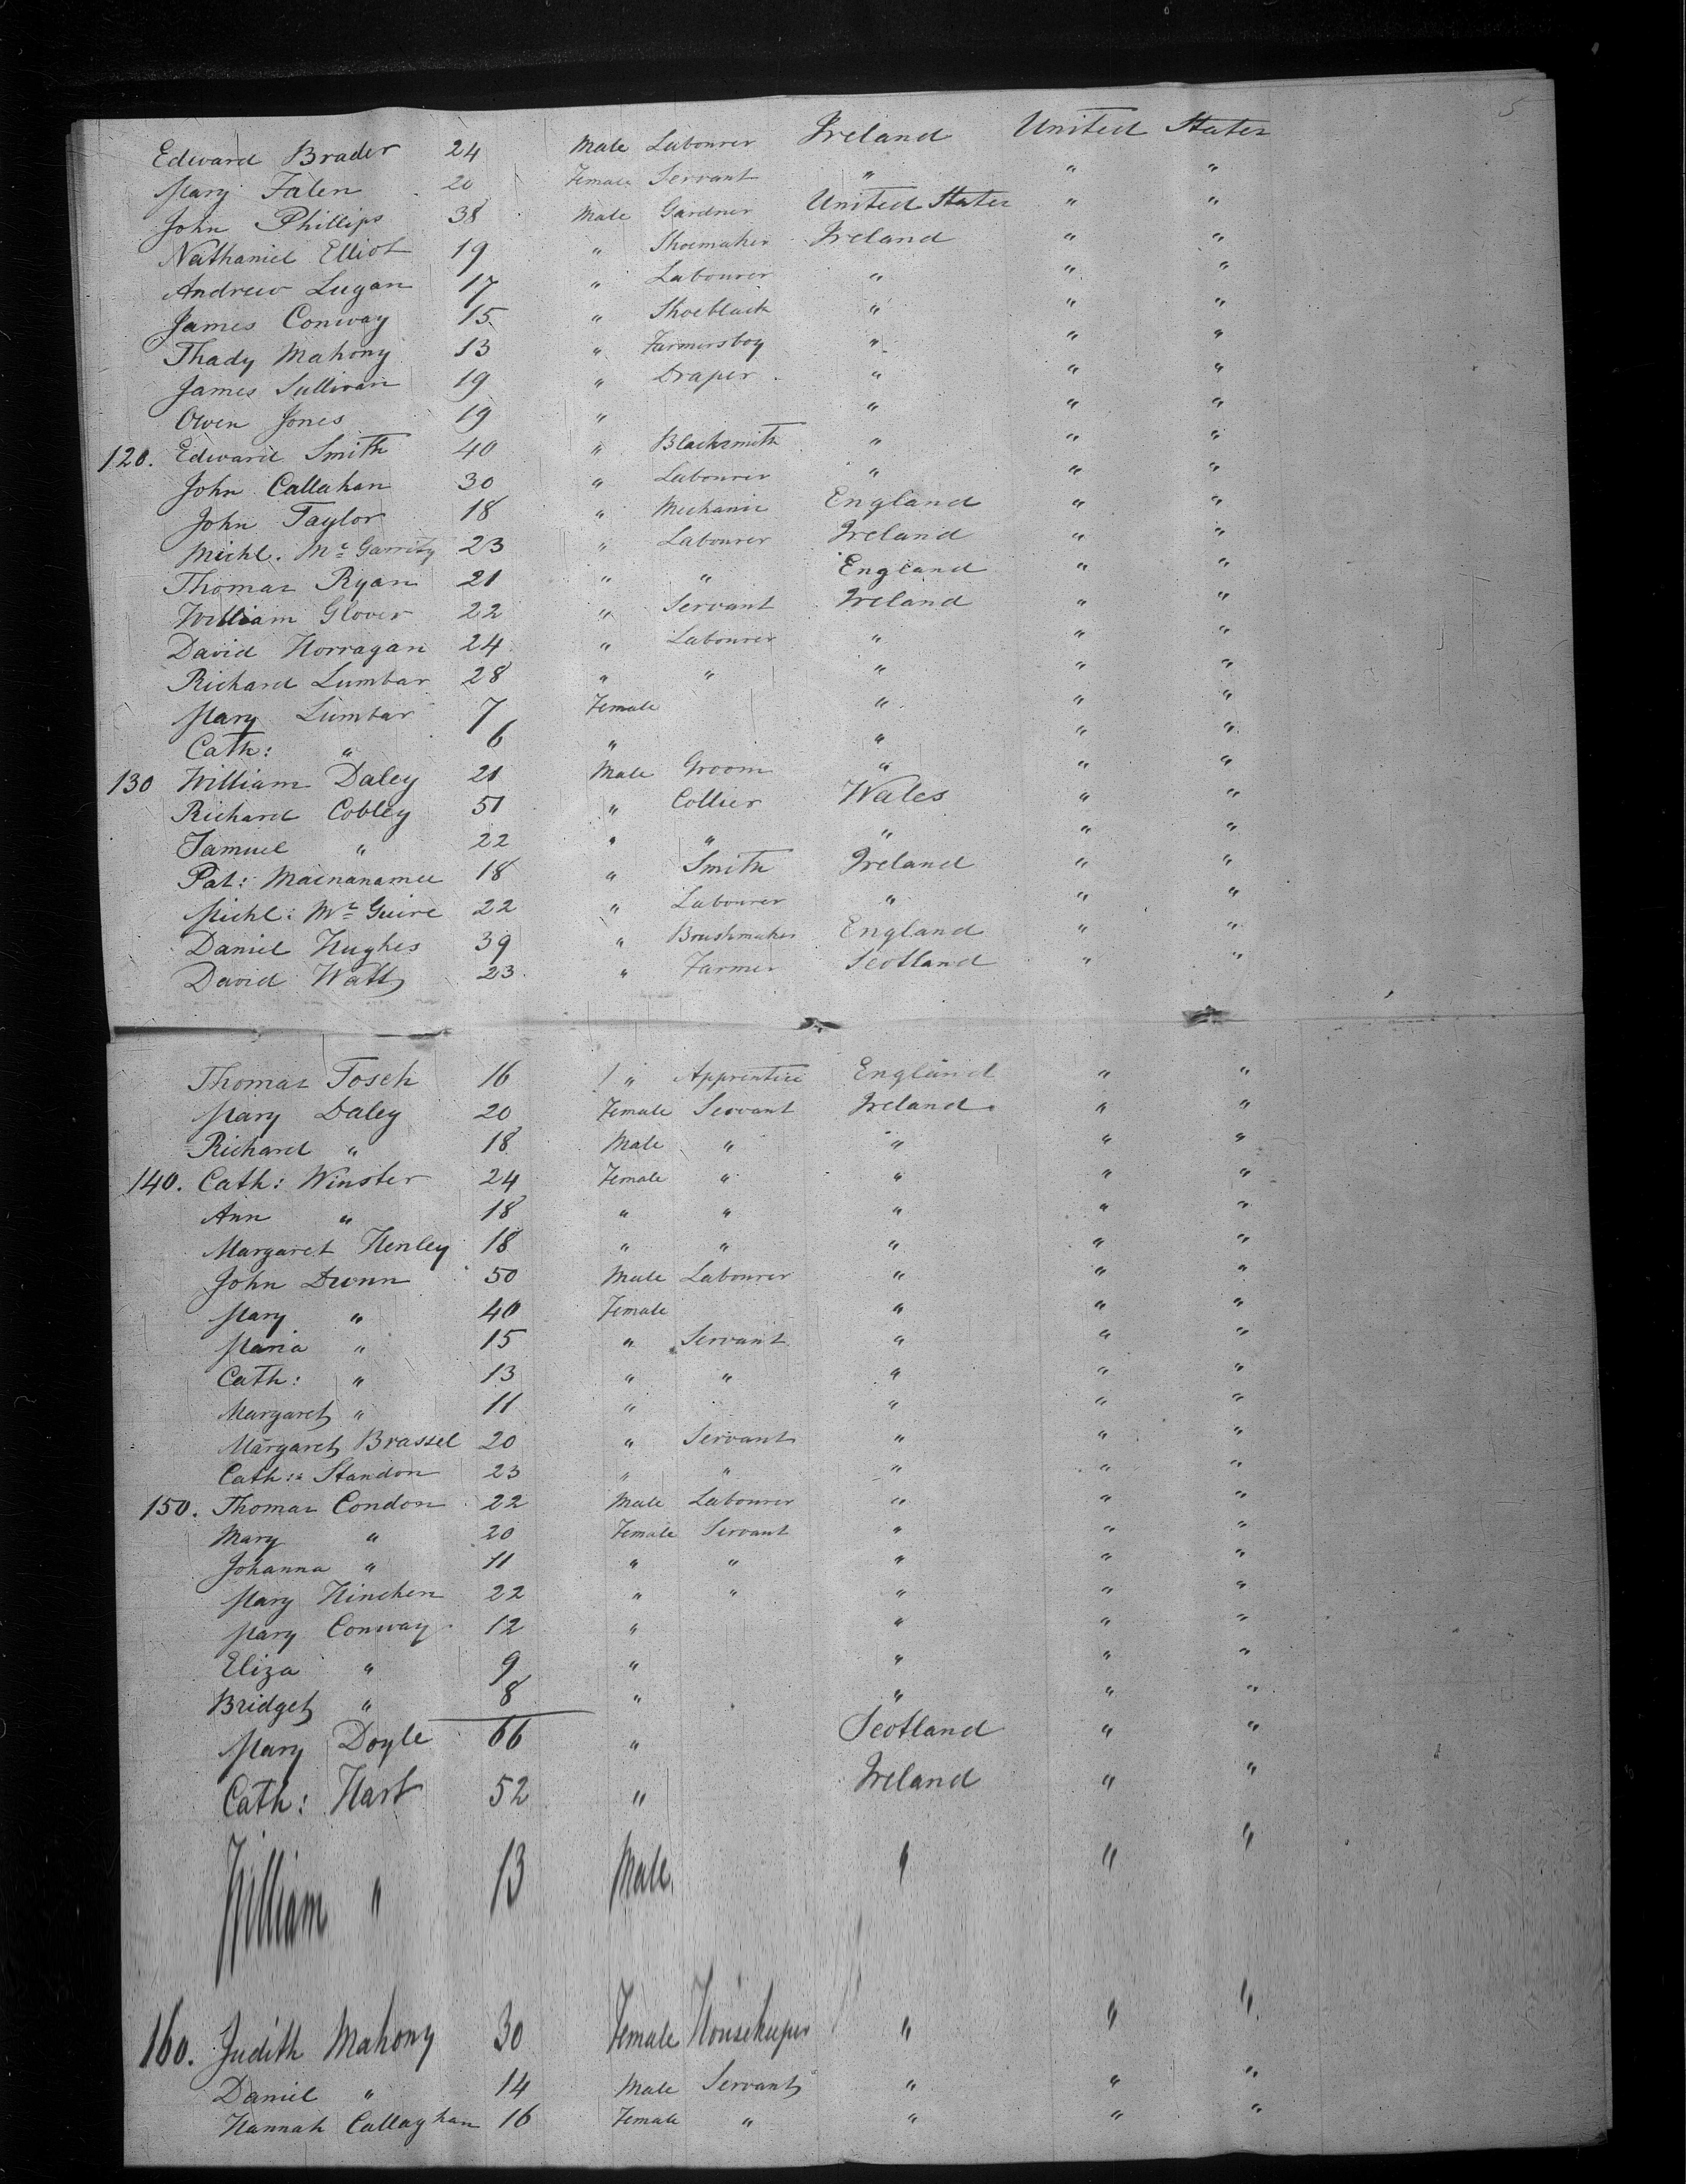 5
Edward Brader 24 Male Labourer Ireland United States
Mary Falen 20 Female Servant " " "
John Phillips 38 Male Gardner United States " "
Nathaniel Elliot 19 " Shoemaker Ireland " "
Andrew Lugan 17 " Labourer " " "
James Conway 15 " Shoeblack " " "
Thady Mahony 13 " Farmersboy " " "
James Sullivan 19 " Draper " " "
Owen Jones 19 " " " "
120. Edward Smith 40 " Blacksmith " " "
John Callahan 30 " Labourer " " "
John Taylor 18 " Mechanic England " "
Michl. Mc Garrity 23 " Labourer Ireland " "
Thomas Ryan 21 " " England " "
William Glover 22 " Servant Ireland " "
David Horragan 24 " Labourer " " "
Richard Lumbar 28 " " " " "
Mary Lumbar 7 Female " " "
Cath: " 6 " " " "
130 William Daley 21 Male Groom " " "
Richard Cobley 51 " Collier Wales " "
Samuel " 22 " " " " "
Pat: Macnanamee 18 " Smith Ireland " "
Michl: Mc Guire 22 " Labourer " " "
Daniel Hughes 39 " Brushmaker England " "
David Watts 23 " Farmer Scotland " "
Thomas Tosch 16 " Apprentice England " "
Mary Daley 20 Female Servant Ireland " "
Richard " 18 Male " " " "
140. Cath: Winster 24 Female " " " "
Ann " 18 " " " " "
Margaret Henley 18 " " " " "
John Dunn 50 Male Labourer " " "
Mary " 40 Female " " "
Maria " 15 " Servant " " "
Cath: " 13 " " " " "
Margaret " 11 " " " "
Margaret Brassel 20 " Servant " " "
Cath: Standon 23 " " " " "
150. Thomas Condon 22 Male Labourer " " "
Mary " 20 Female Servant " " "
Johanna " 11 " " " " "
Mary Hinchen 22 " " " " "
Mary Conway 12 " " " "
Eliza " 9 " " " "
Bridget " 8 " " " "
Mary Doyle 66 " Scotland " "
Cath: Hart 52 " Ireland " "
William " 13 Male " " "
160. Judith Mahony 30 Female Housekeeper " " "
Daniel " 14 Male Servant " " "
Hannah Callaghan 16 Female " " " "